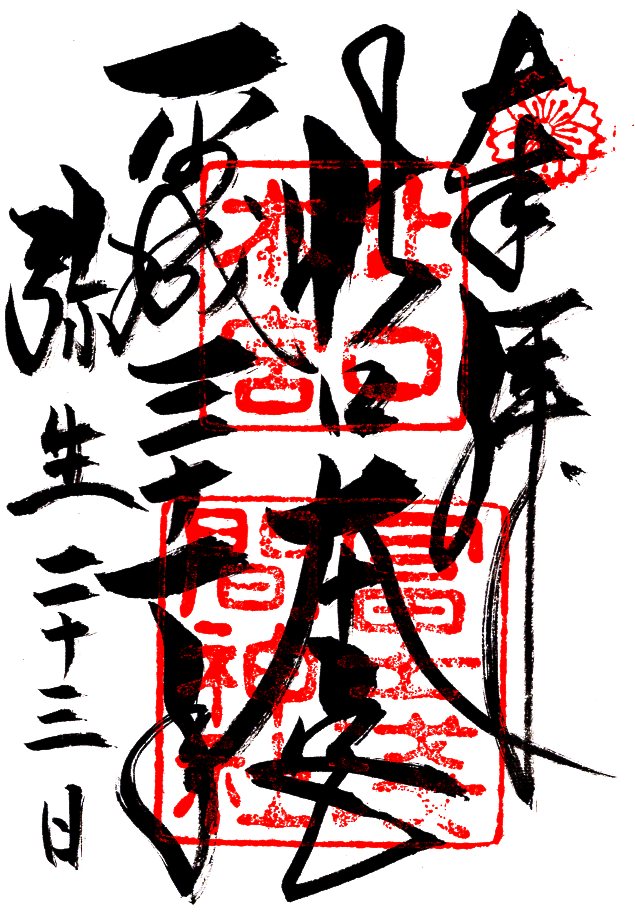 奉拝
北口本宮
平成三十年
弥生二十三日
北口
本宮
冨士浅
間神社